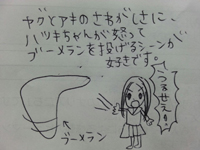 ヤグとアキのさわがしさに、
ハツキちゃんが怒って
ブーメランを投げるシーンが
好きです。
うるせえ!
ブーメラン